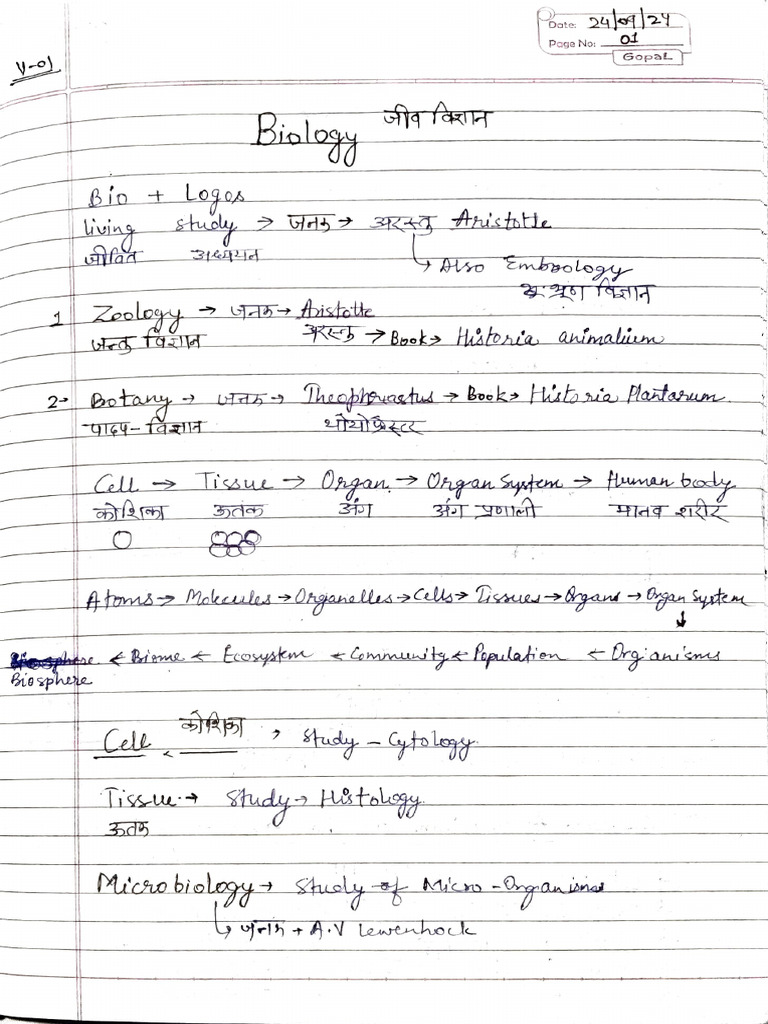 Date: 24/09/24
Page No: 01
Gopal
V-01
Biology जीव विज्ञान
Bio + Logos
living study → जनक → अरस्तु Aristotle
जीवित अध्ययन
↳ Also Embroology
भ्रूण विज्ञान
1 Zoology → जनक → Aristotte
जन्तु विज्ञान अरस्तु → Book → Historia animalium
2- Botany → जनक → Theophrastus → Book → Historia Plantarum.
पादप-विज्ञान थीयोफ्रेस्टर
Cell → Tissue → Organ. → Organ System → Human body
कोशिका ऊतक अंग अंग प्रणाली मानव शरीर
Atoms → Molecules → Organelles → Cells → Tissues → Organs → Organ System
↓
Biosphere ← Biome ← Ecosystem ← Community ← Population ← Organisms
Biosphere
Cell कोशिका , Study - Cytology.
Tissue → Study → Histology.
ऊतक
Microbiology → Study of Micro-Organisms
↳ जनक → A.V Lewenhock